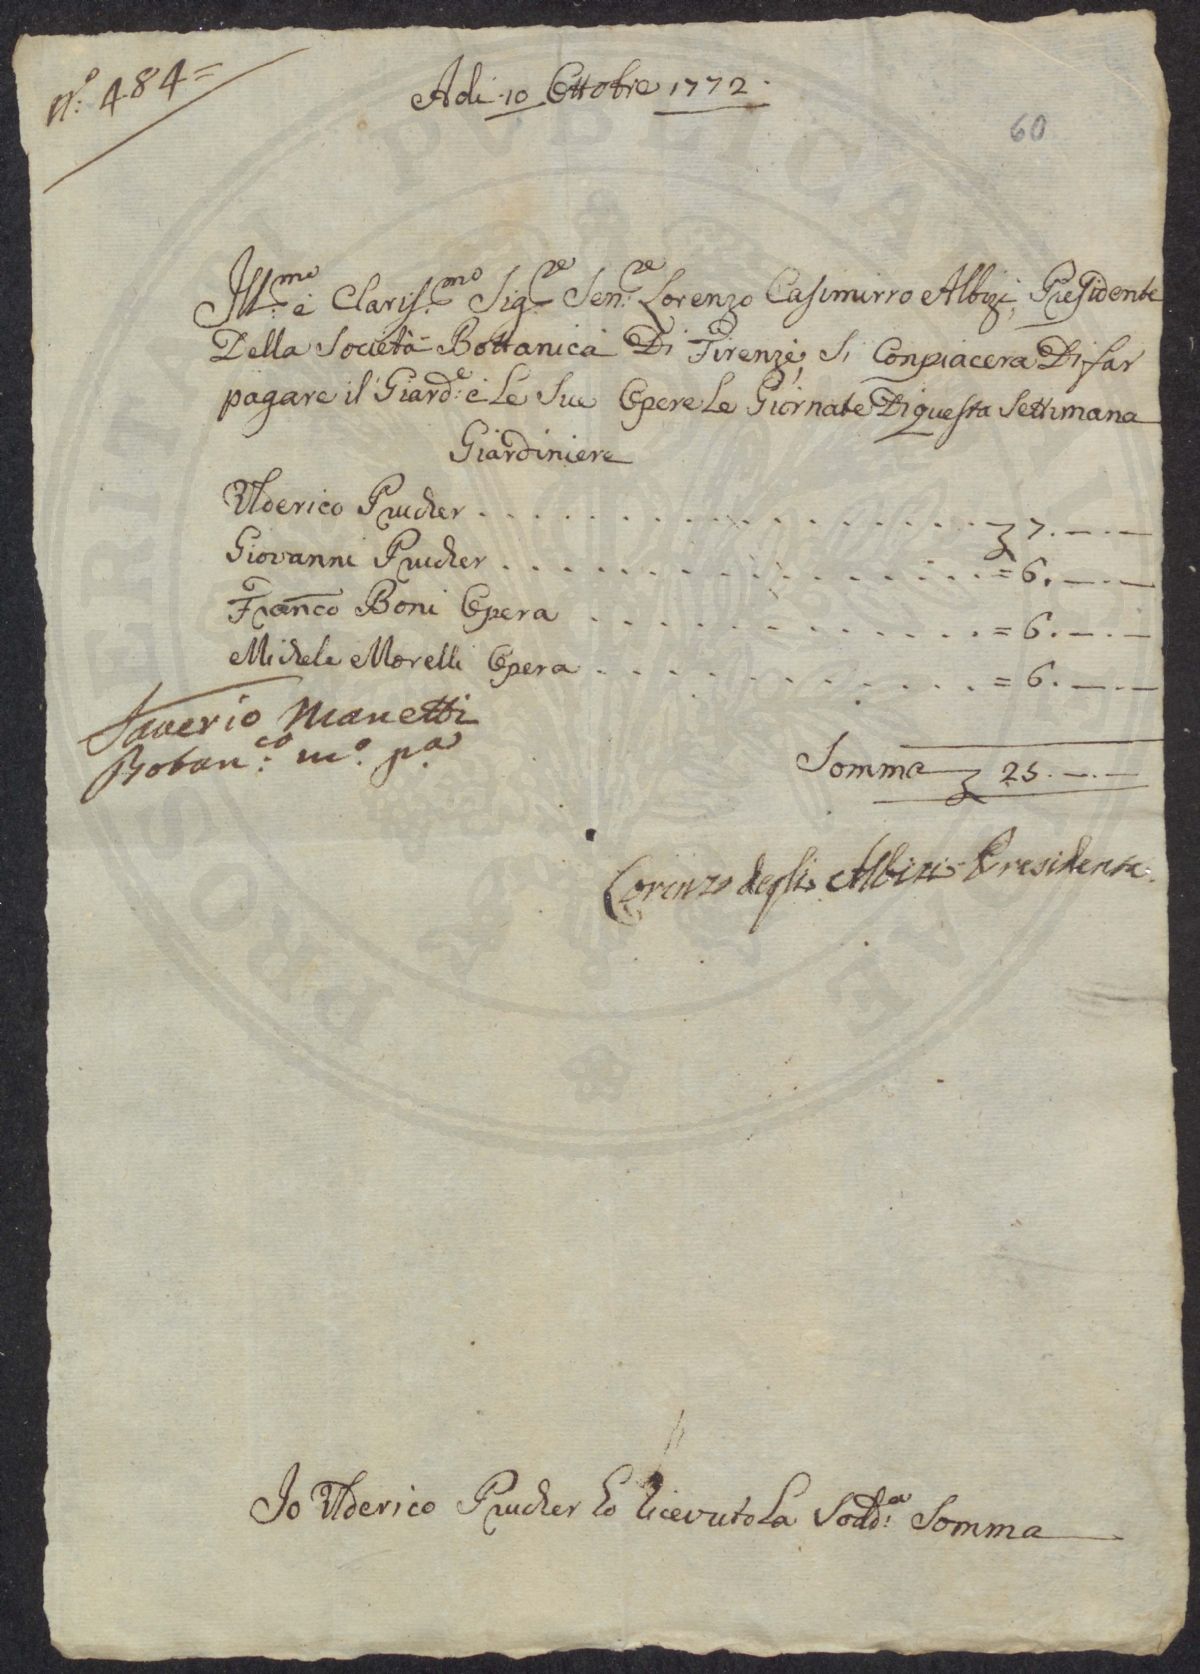 nº: 484=
Adi 10 Ottobre 1772.
60
Ill.mo e Claris.mo Sig.re Sen.re Lorenzo Casimirro Albizi, Presidente
Della Società Bottanica Di Firenze, Si Conpiacera Di far
pagare il Giard.e e Le Sue Opere Le Giornate Di questa Settimana
Giardiniere
Ulderico Prucher . . . . . . . . . . . . . . . . . 7. — . —
Giovanni Prucher . . . . . . . . . . . . . . . . = 6. — . —
Franco Boni Opera . . . . . . . . . . . . . = 6. — . —
Michele Morelli Opera . . . . . . . . . . . . = 6. — . —
Saverio Manetti
Botan.co m.o p.a
Somma 25. — . —
Lorenzo degli Albizi Presidente.
Io Ulderico Prucher ho ricevuto La Sodd.a Somma
PRO PUBLICAE